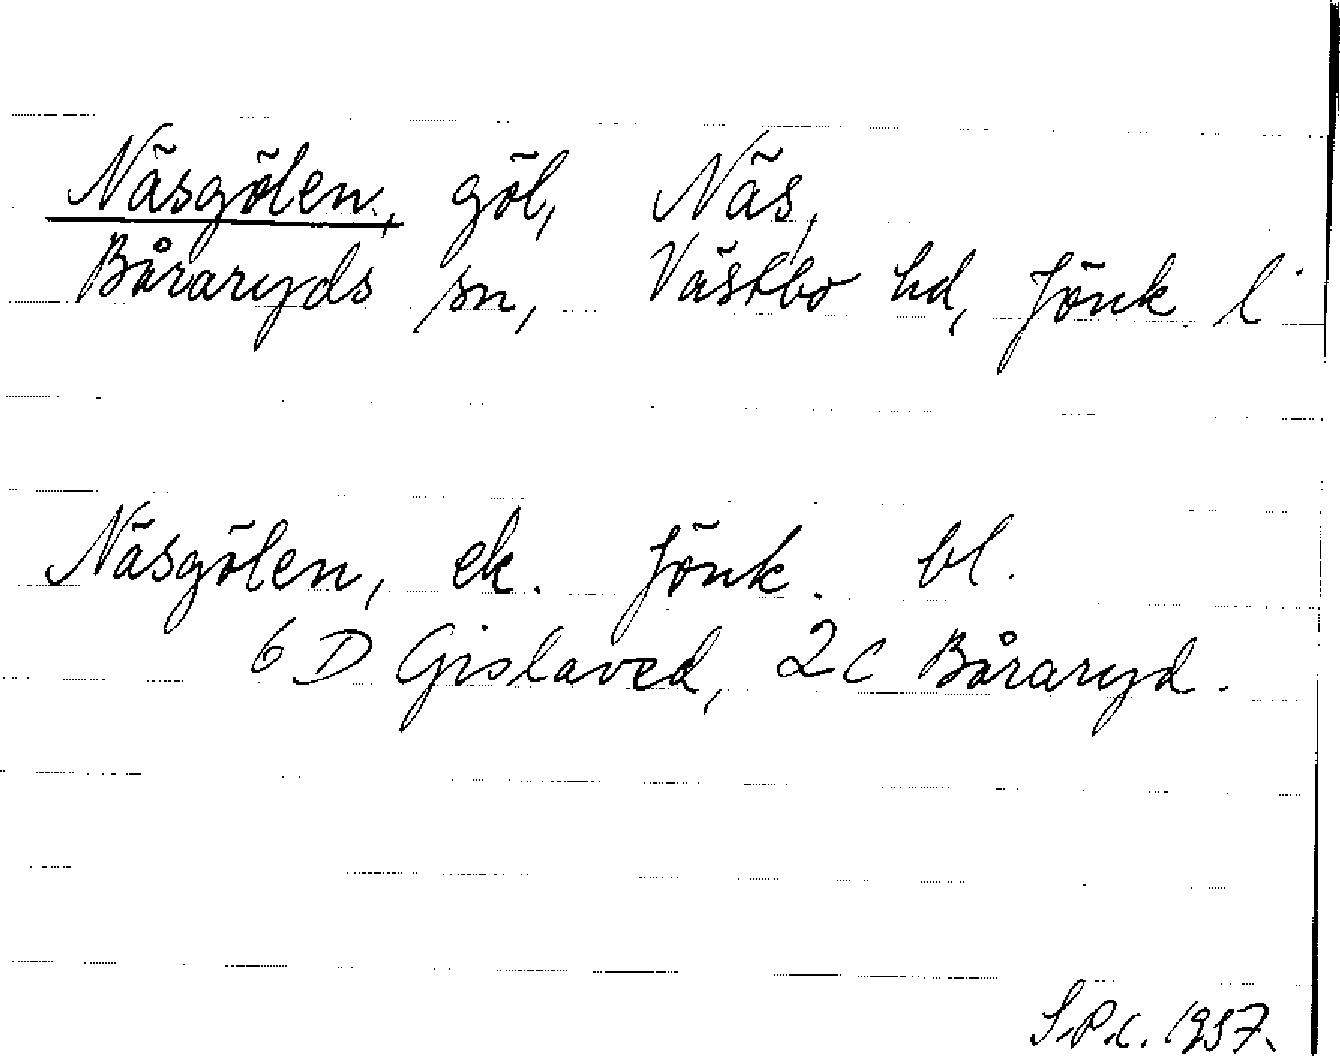 Näsgölen, göl, Näs,
Båraryds sn, Västbo hd, Jönk. l
Näsgölen, ek. Jönk. bl.
6 D Gislaved, 2 C Båraryd.
1957.